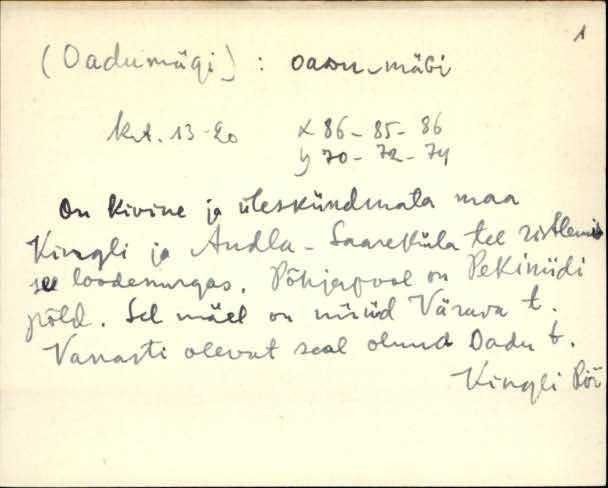 1
(Oadumägi) : oaᴅu-mäɢi
krt. 13-20 x 86 - 85 - 86
y 70 - 72 - 74
On kivine ja üleskündmata maa
Kingli ja Andla - Saareküla tee ristlemi
se loodenurgas. Põhjapool on Pekiniidi
põld. Sel mäel on nüüd Värava t.
Vanasti olevat seal olnud Oadu t.
Kingli Pöi